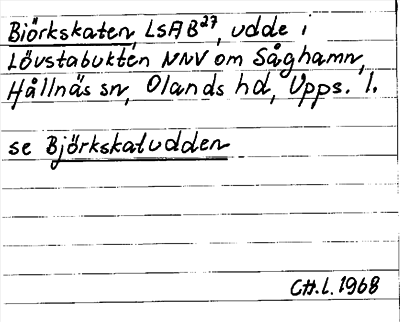 Björkskaten, LSAB²⁷, udde i
Lövstabukten NNV om Såghamn,
Hållnäs sn, Olands hd, Upps. l.
se Björkskatudden
CH.l. 1968